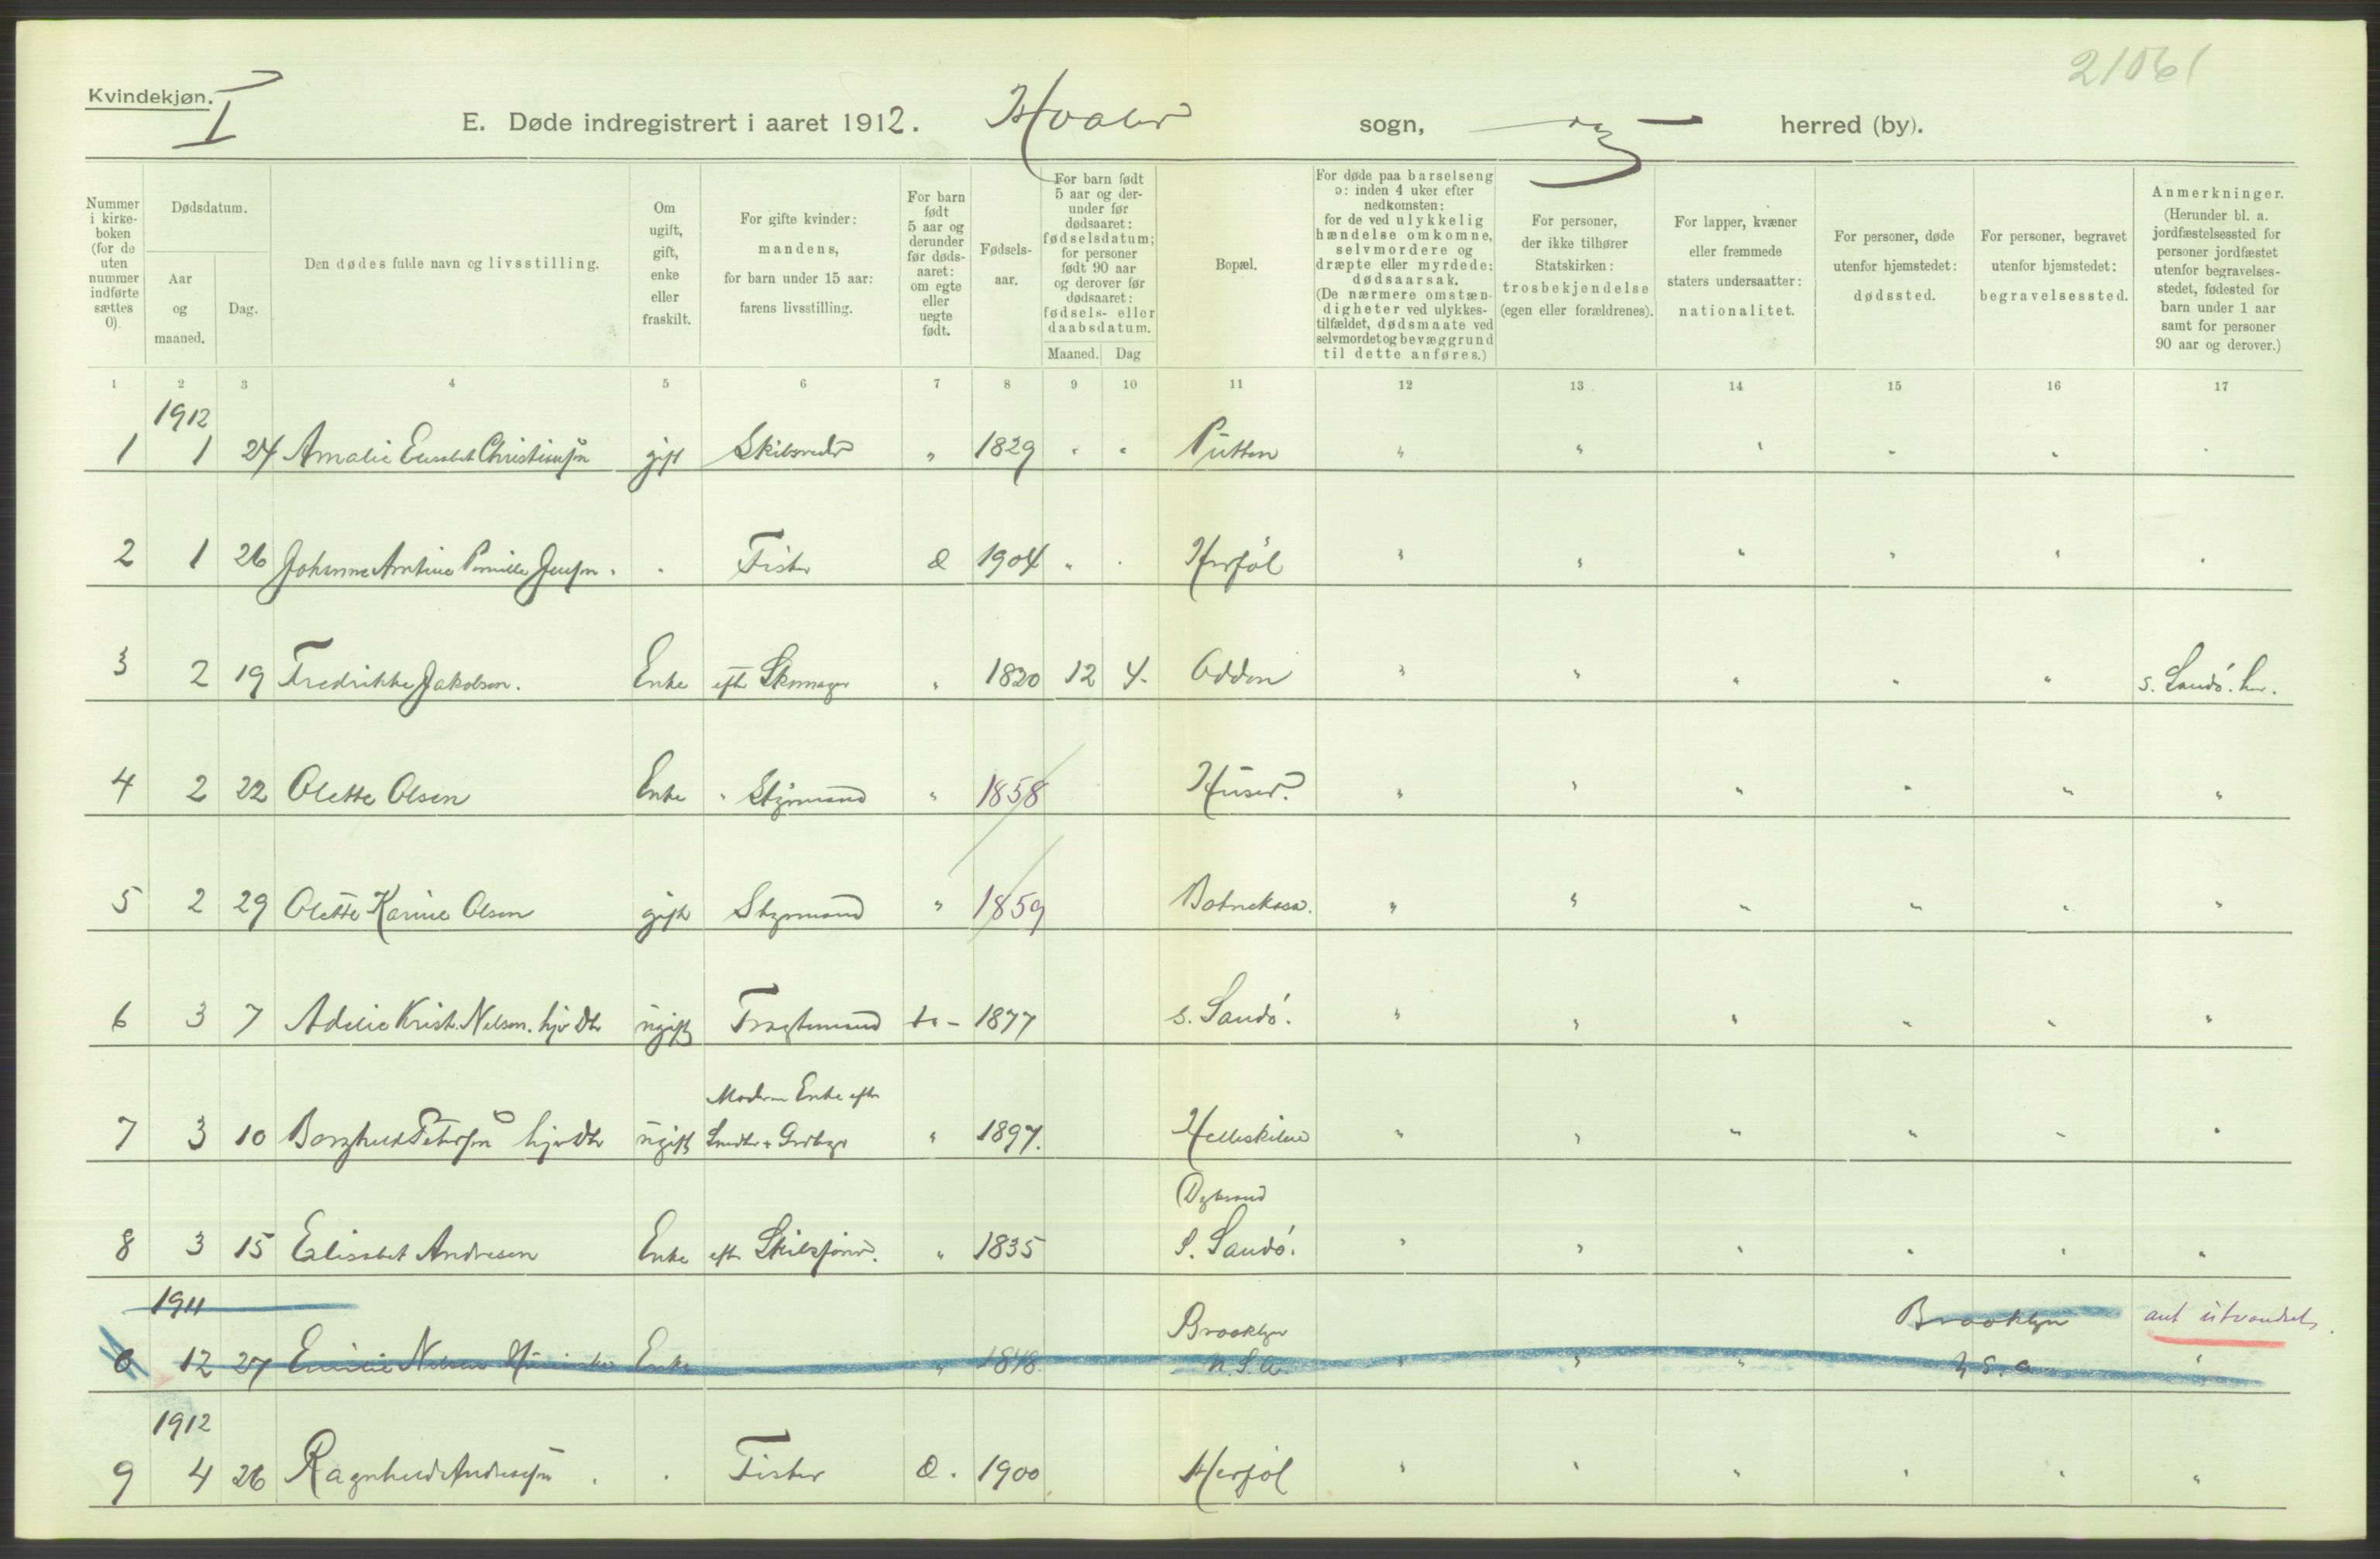 21061
Kvindekjøn. I
E. Døde indregistrert i aaret 1912. Hvaler sogn, herred (by).
Nummer i kirkeboken (for de uten nummer indførte sættes 0).
Dødsdatum.
Aar og maaned.
Dag.
Den dødes fulde navn og livsstilling.
Om ugift, gift, enke eller fraskilt.
For gifte kvinder: mandens, for barn under 15 aar: farens livsstilling.
For barn født 5 aar og derunder før dødsaaret: om egte eller uegte født.
Fødselsaar.
For barn født 5 aar og derunder før dødsaaret: fødselsdatum; for personer født 90 aar og derover før dødsaaret: fødsels- eller daabsdatum.
Maaned. Dag
Bopæl.
For døde paa barselseng ɔ: inden 4 uker efter nedkomsten: for de ved ulykkelig hændelse omkomne, selvmordere og dræpte eller myrdede: dødsaarsak. (De nærmere omstændigheter ved ulykkestilfældet, dødsmaate ved selvmordet og bevæggrund til dette anføres.)
For personer, der ikke tilhører Statskirken: trosbekjendelse (egen eller forældrenes).
For lapper, kvæner eller fremmede staters undersaatter: nationalitet.
For personer, døde utenfor hjemstedet: dødssted.
For personer, begravet utenfor hjemstedet: begravelsessted.
Anmerkninger. (Herunder bl. a. jordfæstelsessted for personer jordfæstet utenfor begravelsesstedet, fødested for barn under 1 aar samt for personer 90 aar og derover.)
1 2 3 4 5 6 7 8 9 10 11 12 13 14 15 16 17
1912
1 1 24 Amalie Elisabet Christiansen gift Skibsreder " 1829 " " Putten " " " " " "
2 1 26 Johanne Antine Pernille Jensen " Fisker 1904 " " Herføl " " " " " "
3 2 19 Fredrikke Jakobsen. Enke eftr Skomager " 1820 12 4. Odden " " " " " s. Sandö
4 2 22 Olette Olsen Enke " Styrmand " 1858 Huser. " " " " " "
5 2 29 Olette Karine Olsen gift Styrmand " 1859 " " " " " "
6 3 7 Adelie Krist. Nelsen. hjv Dtr ugift 1877 s. Sandö. " " " " " "
Moderen Enke eftr
7 3 10 Borghild Petersen hjv Dtr ugift " 1897. " " " " " "
8 3 15 Elisabet Andresen Enke eftr " 1835 S. Sandö. " " " " " "
1911
Brooklyn Brooklyn ant utvandret.
0 12 27 Emilie Nelsen Enke " 1848. U.S.A. " " " U.S.A. "
1912
9 4 26 Ragnhild Andresen Fisker 1900 Herføl " " " " " "